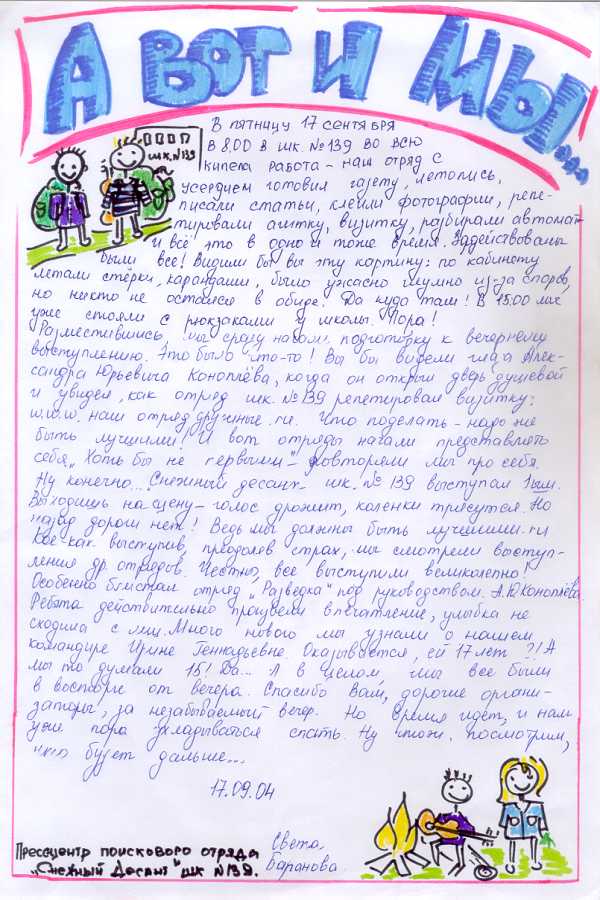 А ВОТ И МЫ...
В пятницу 17 сентября
в 8.00 в шк. №139 во всю
кипела работа – наш отряд с
усердием готовил газету, летопись,
писали статьи, клеили фотографии, репе-
тировали агитку, визитку, разбирали автомат
и всё это в одно и тоже время. Задействованы
были все! Видили бы вы эту картину: по кабинету
летали стёрки, карандаши, было ужасно шумно из-за споров,
но никто не остался в обиде. Да куда там! В 15.00 мы
уже стояли с рюкзаками у школы. Пора!
Разместившись, мы сразу начали подготовку к вечернему
выступлению. Это было что-то! Вы бы видели глаза Алек-
сандра Юрьевича Коноплёва, когда он открыл дверь душевой
и увидел, как отряд шк. №139 репетировал визитку:
w.w.w. наш отряд дружные. ru. Что поделать – надо же
быть лучшими! И вот отряды начали представлять
себя. „Хоть бы не первыми" – повторяли мы про себя.
Ну конечно... Снежный десант шк. № 139 выступал 1ым.
Выходишь на сцену – голос дрожит, коленки трясутся. Но
назад дороги нет! Ведь мы должны быть лучшими. ru
Кое-как выступив, преодолев страх, мы смотрели выступ-
ления др. отрядов. Честно, все выступили великолепно!
Особенно блистал отряд „Разведка" под руководством А.Ю.Коноплёва.
Ребята действительно произвели впечатление, улыбка не
сходила с лиц. Много нового мы узнали о нашем
командире Ирине Геннадьевне. Оказывается, ей 17 лет?! А
мы то думали 18! Да... А в целом, мы все были
в восторге от вечера. Спасибо Вам, дорогие органи-
заторы, за незабываемый вечер. Но время идёт, и нам
уже пора укладываться спать. Ну чтож, посмотрим,
что будет дальше...
17.09.04
шк. №139
Прессцентр поискового отряда
„Снежный Десант" шк №139.
Света
Баранова